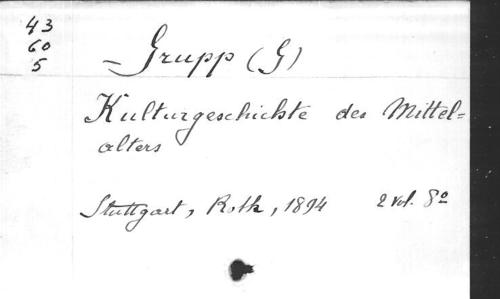 43
60
5
- Grupp (G)
Kulturgeschichte des Mittel=
alters
Stuttgart, Roth, 1894 2 vol. 8o